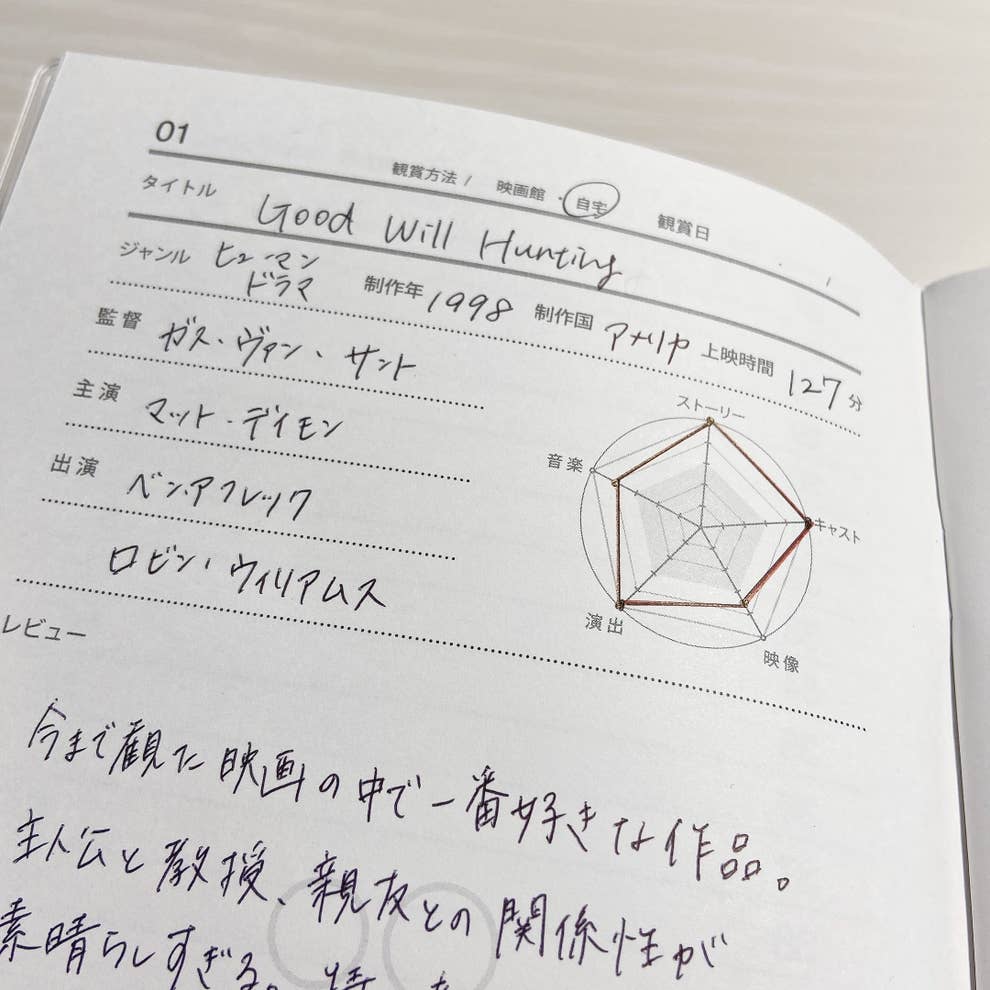 01
観賞方法 / 映画館・自宅 観賞日
タイトル Good Will Hunting
ジャンル ヒューマンドラマ 制作年 1998 制作国 アメリカ 上映時間 127分
監督 ガス・ヴァン・サント
主演 マット・デイモン
出演 ベン・アフレック
ロビン・ウィリアムス
ストーリー
音楽
キャスト
演出
映像
レビュー
今まで観た映画の中で一番好きな作品。
主人公と教授、親友との関係性が
素晴らしすぎる。